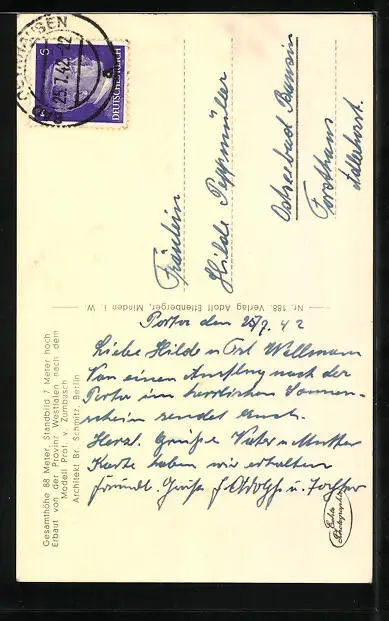 HAUSEN
25.7.42.-22
a
6
DEUTSCHES REICH
Fräulein
Hilde Peppmüller
Ostseebad Bansin
Forsthaus
Adlerhorst.
Nr. 188. Verlag Adolf Ettenberger, Minden i. W.
Gesamthöhe 88 Meter, Standbild 7 Meter hoch
Erbaut von der Provinz Westfalen nach dem
Modell Prof. v. Zumbusch
Architekt Br. Schmitz, Berlin
Porta den 25/7. 42
Liebe Hilde u Frl. Wellmann
Von einen Ausflug nach der
Porta im herrlichen Sonnen-
schein sendet Euch
Herzl. Grüße Vater u Mutter
Karte haben wir erhalten
freundl. Grüße u. Tochter
Echte
Photographie